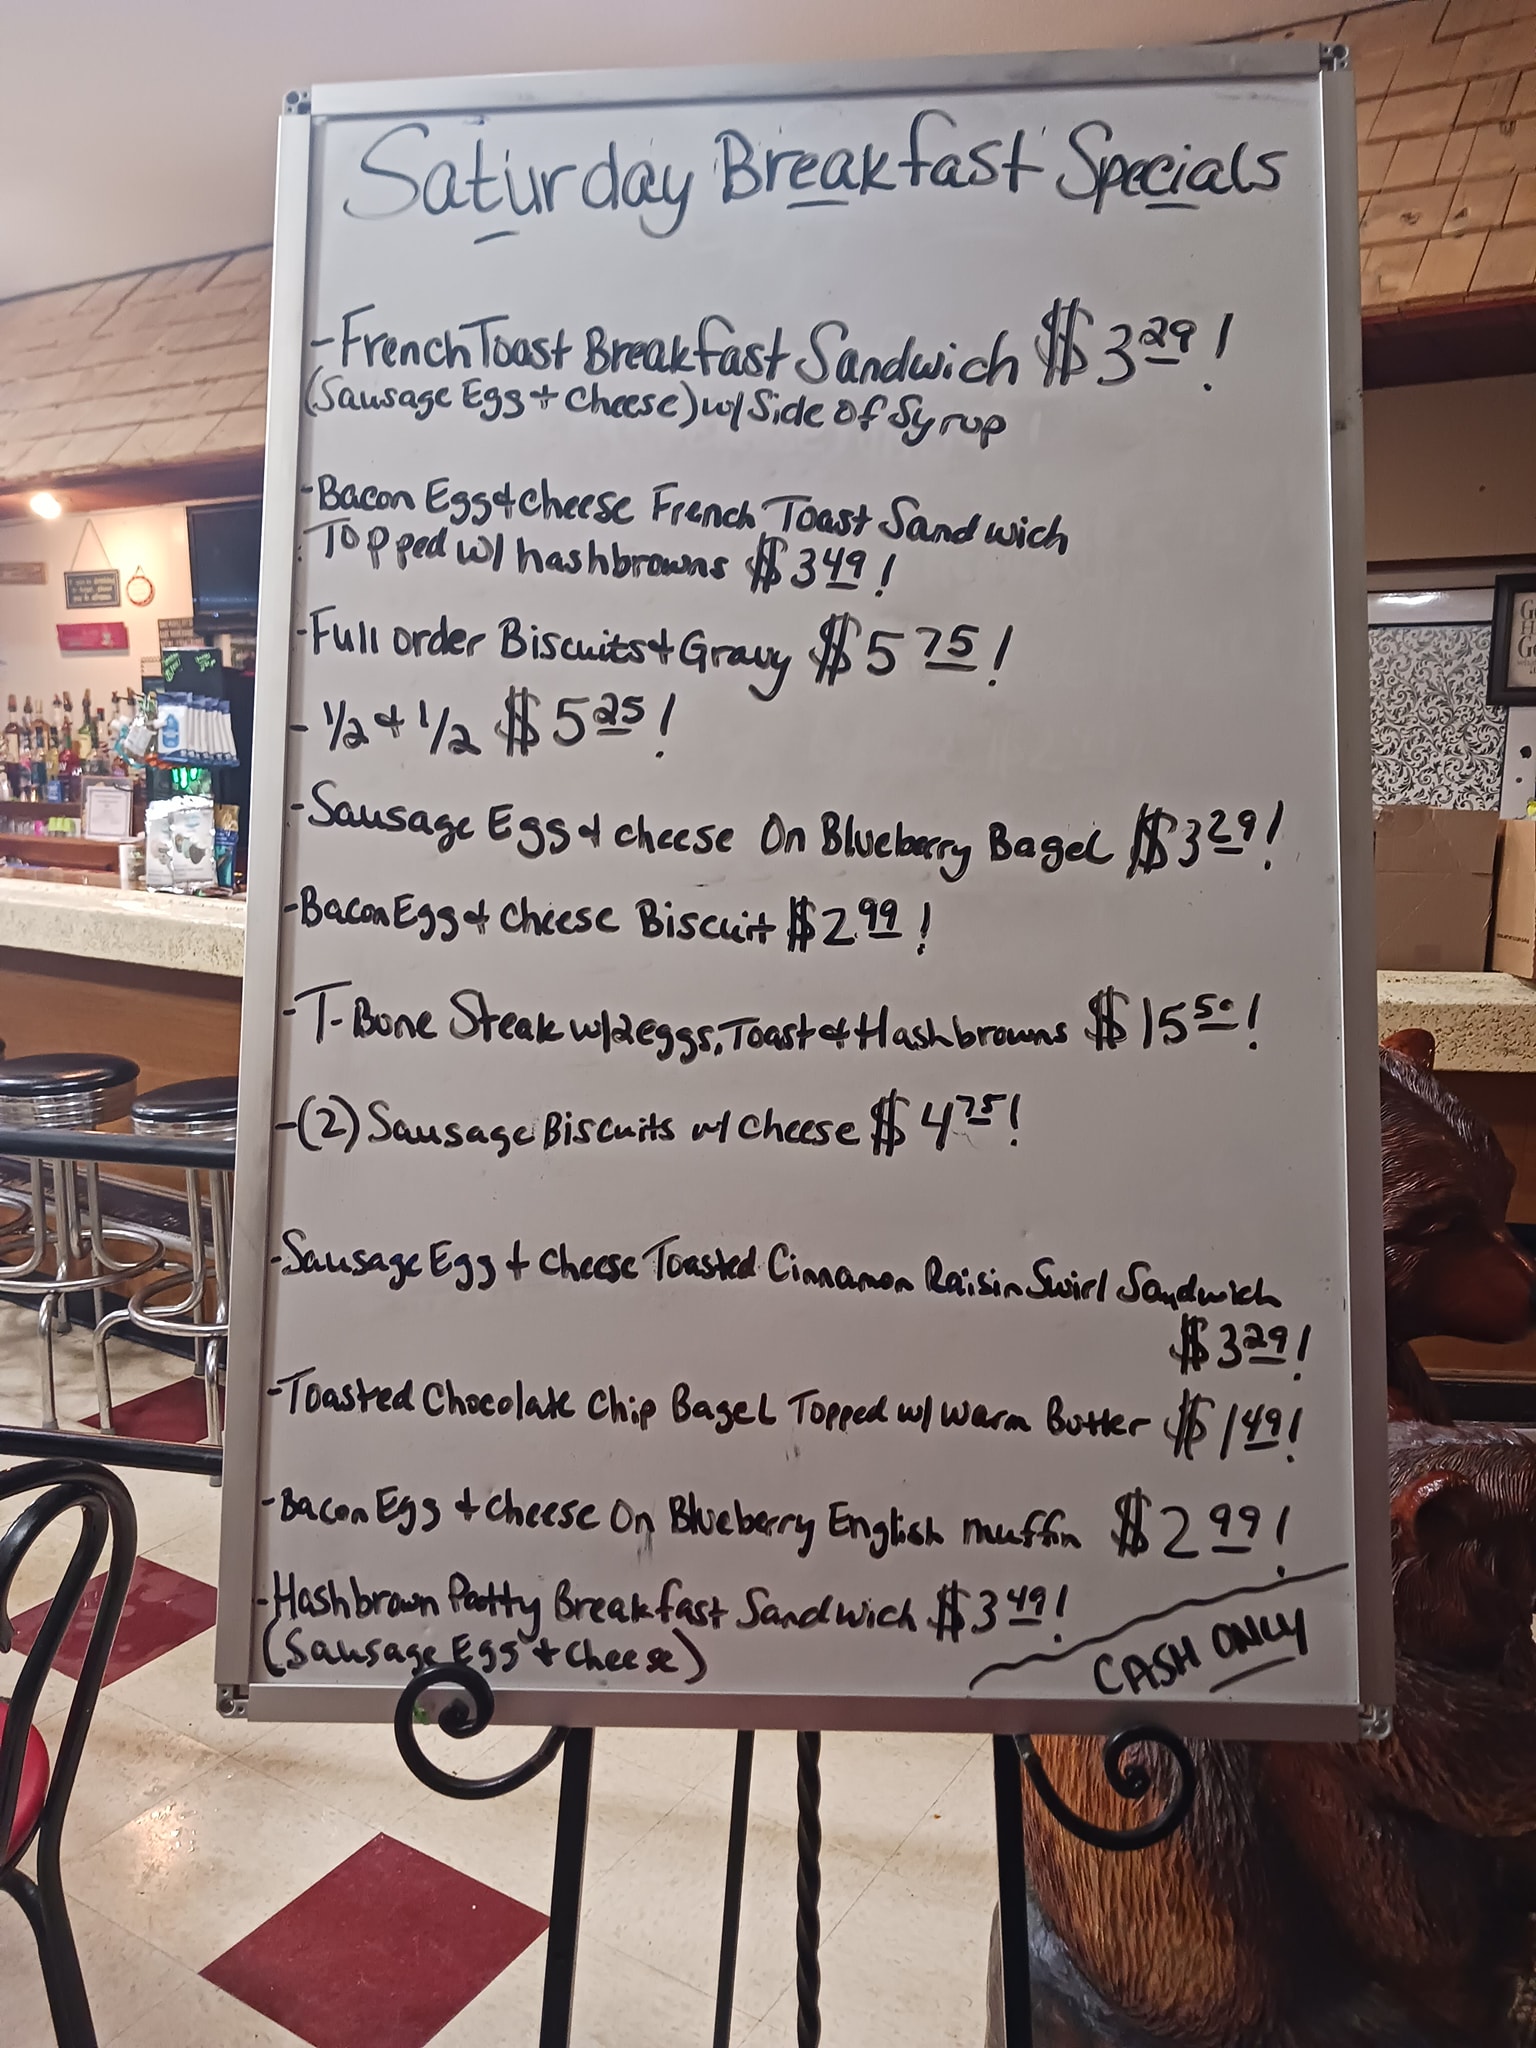 Saturday Breakfast Specials
- French Toast Breakfast Sandwich $3 29!
(Sausage Egg + Cheese) w/ Side of Syrup
- Bacon Egg + Cheese French Toast Sandwich
Topped w/ hashbrowns $3 49!
- Full order Biscuits + Gravy $5 75!
- 1/2 + 1/2 $5 25!
- Sausage Egg + Cheese On Blueberry Bagel $3 29!
- Bacon Egg + Cheese Biscuit $2 99!
- T-Bone Steak w/ 2 eggs, Toast + Hashbrowns $15 50!
- (2) Sausage Biscuits w/ Cheese $4 75!
- Sausage Egg + Cheese Toasted Cinnamon Raisin Swirl Sandwich
$3 29!
- Toasted Chocolate Chip Bagel Topped w/ Warm Butter $1 49!
- Bacon Egg + Cheese On Blueberry English muffin $2 99!
- Hashbrown Patty Breakfast Sandwich $3 49!
(Sausage Egg + Cheese)
CASH ONLY